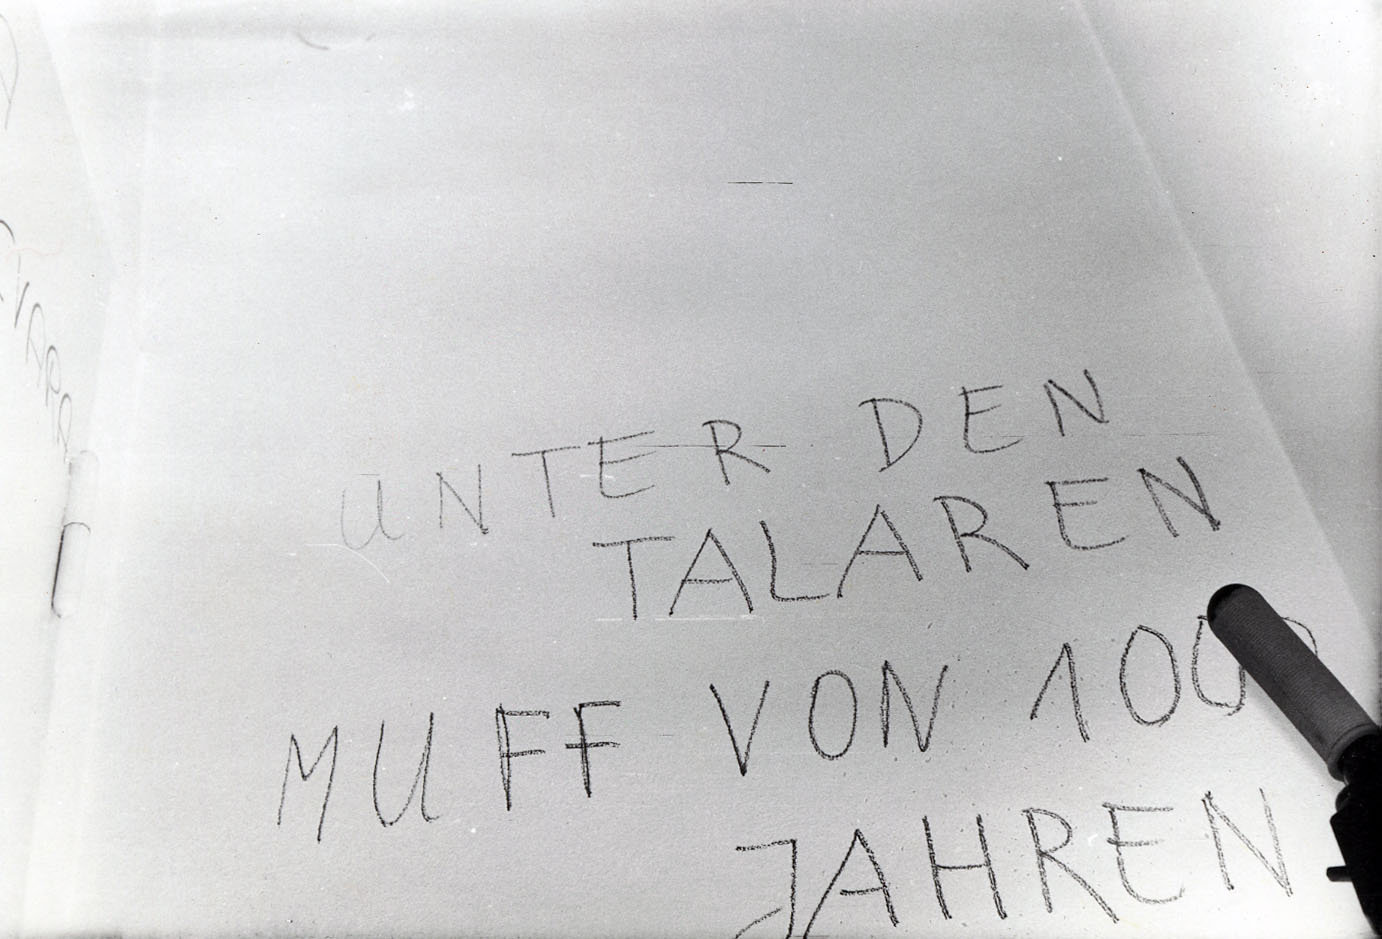 UNTER DEN
TALAREN
MUFF VON 1000
JAHREN